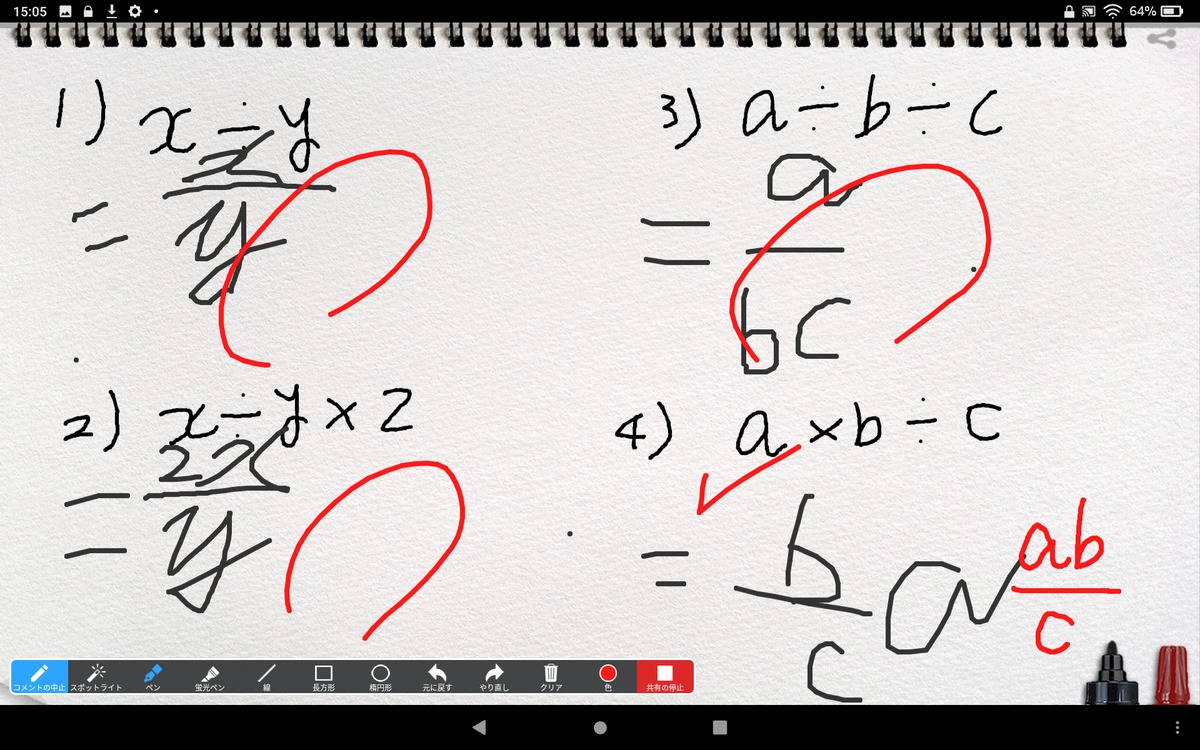 15:05 64%
1) x÷y
= x/y
2) x÷y×2
= 2x/y
3) a÷b÷c
= a/bc
4) a×b÷c
= b/c a ab/c
コメントの中止 スポットライト ペン 蛍光ペン 線 長方形 楕円形 元に戻す やり直し クリア 色 共有の停止